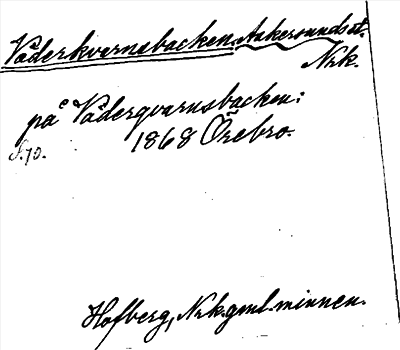 Väderkvarnsbacken. Askersunds st.
Nrk.
på Vädergvarnsbacken:
S. 70. 1868 Örebro.
Hofberg, Nrk. gml. minnen.